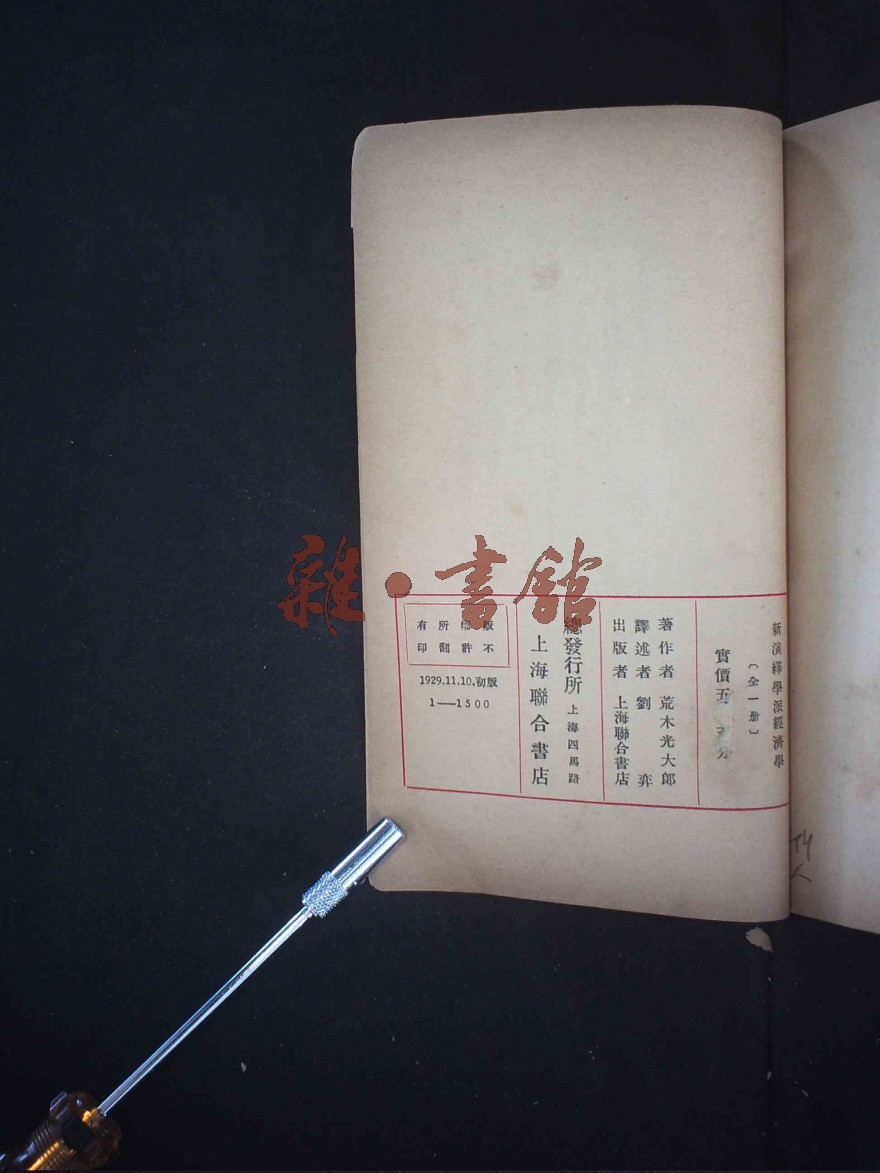 新演繹學派經濟學
〔全一冊〕
實價五 分
著作者 荒木光大郎
譯述者 劉弈
出版者 上海聯合書店
總發行所 上海四馬路
上海聯合書店
版權所有
不許翻印
1929.11.10.初版
1—1500
雜·書館